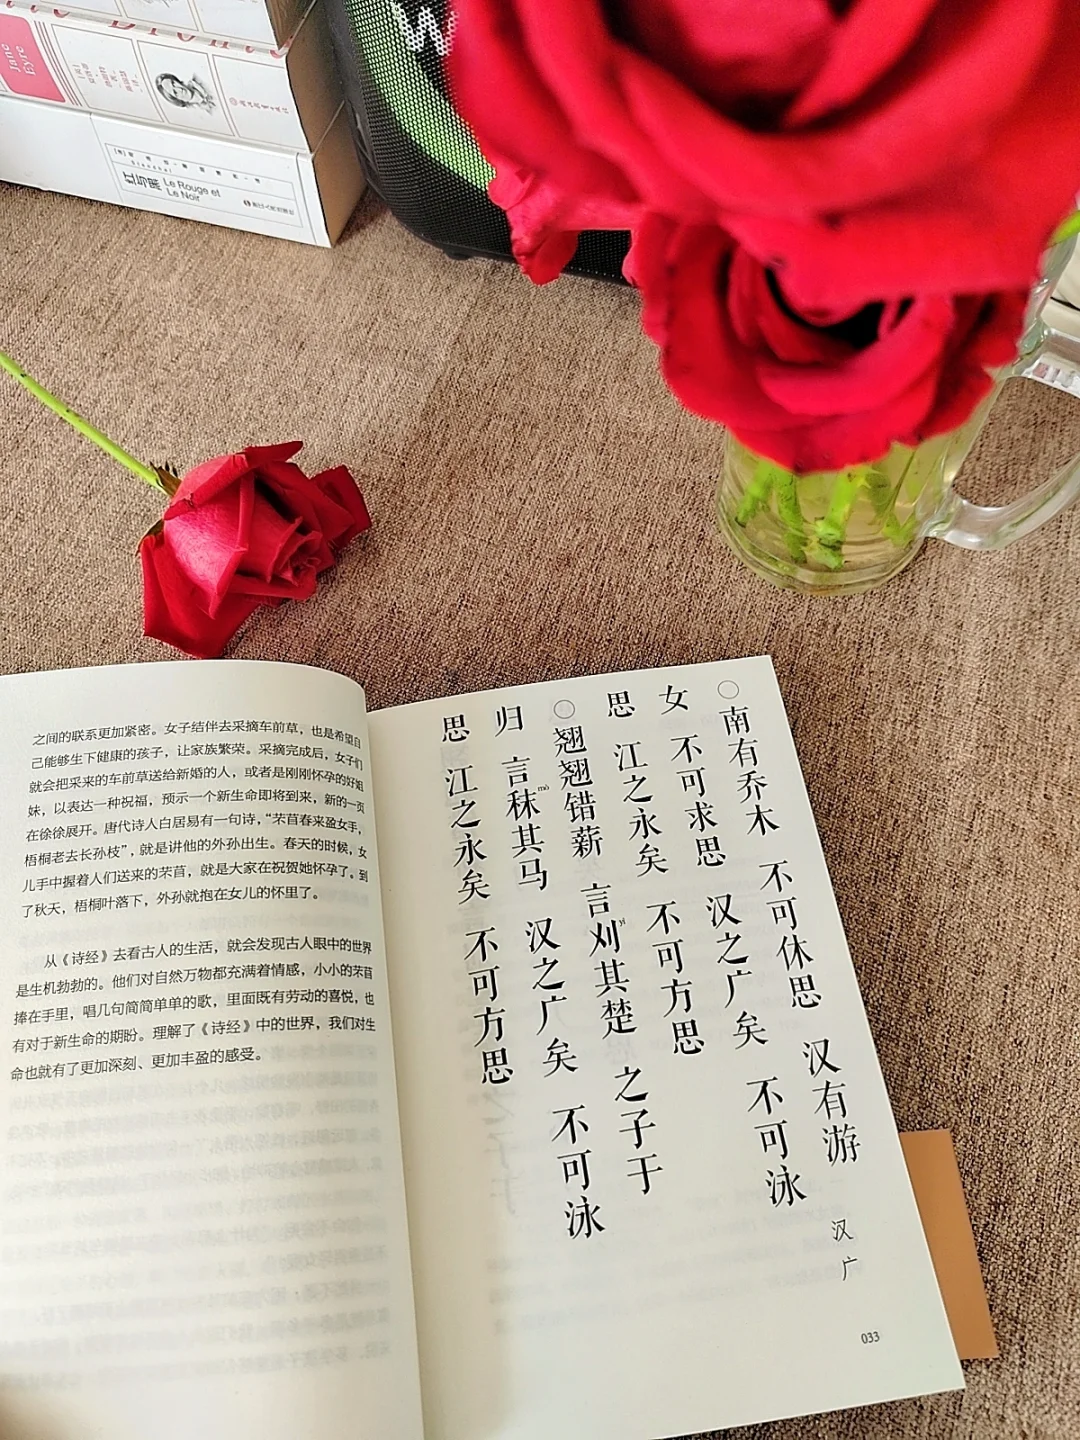 Jane Eyre
红与黑
Le Rouge et
Le Noir
W
之间的联系更加紧密。女子结伴去采摘车前草，也是希望自
己能够生下健康的孩子，让家族繁荣。采摘完成后，女子们
就会把采来的车前草送给新婚的人，或者是刚刚怀孕的好姐
妹，以表达一种祝福，预示一个新生命即将到来，新的一页
在徐徐展开。唐代诗人白居易有一句诗，“芣苢春来盈女手，
梧桐老去长孙枝”，就是讲他的外孙出生。春天的时候，女
儿手中握着人们送来的芣苢，就是大家在祝贺她怀孕了。到
了秋天，梧桐叶落下，外孙就抱在女儿的怀里了。
从《诗经》去看古人的生活，就会发现古人眼中的世界
是生机勃勃的。他们对自然万物都充满着情感，小小的芣苢
捧在手里，唱几句简简单单的歌，里面既有劳动的喜悦，也
有对于新生命的期盼。理解了《诗经》中的世界，我们对生
命也就有了更加深刻、更加丰盈的感受。
○南有乔木 不可休思 汉有游
女 不可求思 汉之广矣 不可泳
思 江之永矣 不可方思
○翘翘错薪 言刈yì其楚 之子于
归 言秣mò其马 汉之广矣 不可泳
思 江之永矣 不可方思
汉广
033